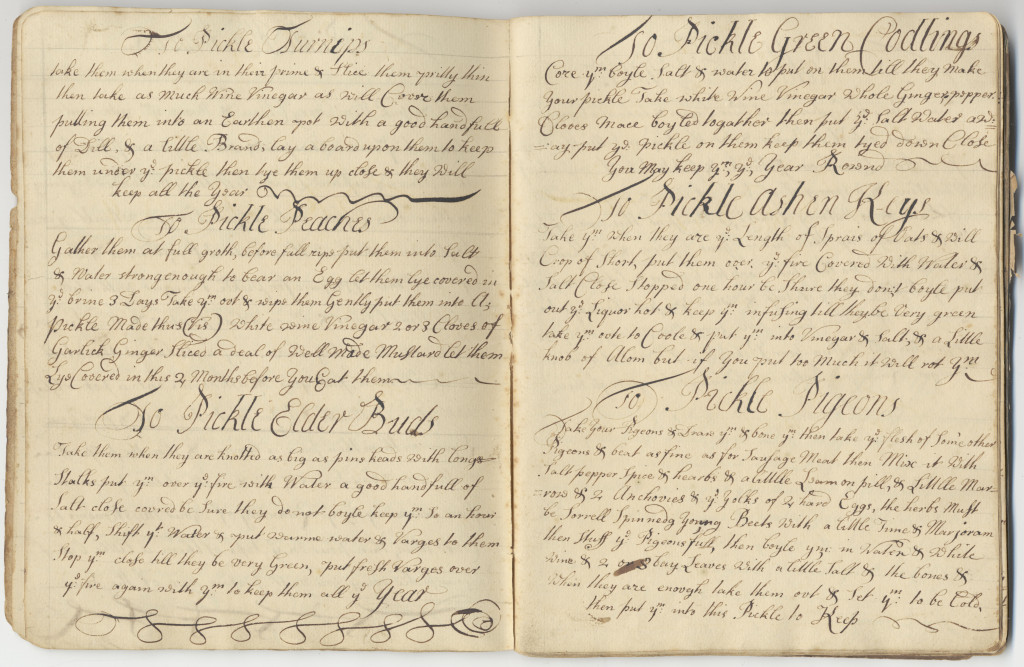 To Pickle Turnips
take them when they are in their prime & slice them pritty thin
then take as much Wine Vinegar as will Cover them
putting them into an Earthen pot with a good handfull
of Dill, & a little Brand; lay a board upon them to keep
them under yᵉ pickle then tye them up close & they Will
keep all the Year
To Pickle Peaches
Gather them at full groth, before full ripe put them into Salt
& Water strong enough to bear an Egg let them lye covered in
yᵉ brine 3 Days Take yᵐ out & wipe them Gently put them into A
Pickle Made thus (Vis) White wine Vinegar 2 or 3 Cloves of
Garlick Ginger Sliced a deal of Well Made Mustard let them
Lye Covered in this 2 Months before You Eat them
To Pickle Elder Buds
Take them when they are knotted as big as pins heads With long
Stalks put yᵐ over yᵉ fire with Water a good handfull of
Salt close covred be Sure they do not boyle keep yᵐ So an hour
& half, Shift yᵗ Water & put warme water & Varges to them
Stop yᵐ close till they be very Green, put fresh Varges over
yᵉ fire again with yᵐ to keep them all yᵉ Year
To Pickle Green Codlings
Core yᵐ boyle Salt & water to put on them till they make
Your pickle Take white Wine Vinegar Whole Ginger pepper
Cloves Mace boyled togather then put yᵉ Salt Water aw=
=ay put yᵉ Pickle on them keep them tyed down Close
You May keep yᵐ yᵉ Year Rownd
To Pickle Ashen Keys
Take yᵐ When they are yᵉ Length of Sprais of Oats & Will
Crop of Short, put them over yᵉ fire Covered With Water &
Salt Close Stopped one hour be Shure they don't boyle put
out yᵉ Liquor hot & keep yᵐ infusing till they be Very green
take yᵐ oute to Coole & put yᵐ into Vinegar & Salt, & a Little
knob of Alom but if You put too Much it Will rot yᵐ
To Pickle Pigeons
Take Your Pigeons & Draw yᵐ & bone yᵐ then take yᵉ flesh of Some other
Pigeons & beat as fine as for Sausage Meat then Mix it With
Salt pepper Spice & hearbs & a little Leamon pill, & Little Mar=
=row & 2 Anchovies & yᵉ Yolks of 2 hard Eggs, the herbs Must
be Sorrell Spinnedg Young Beets With a little Time & Marjoram
then stuff yᵉ Pigeons full, then boyle ym in Water & White
Wine & 2 or 3 bay Leaves With a little Salt & the bones &
When they are enough take them out & Set yᵐ to be Cold,
then put yᵐ into this Pickle to Keep